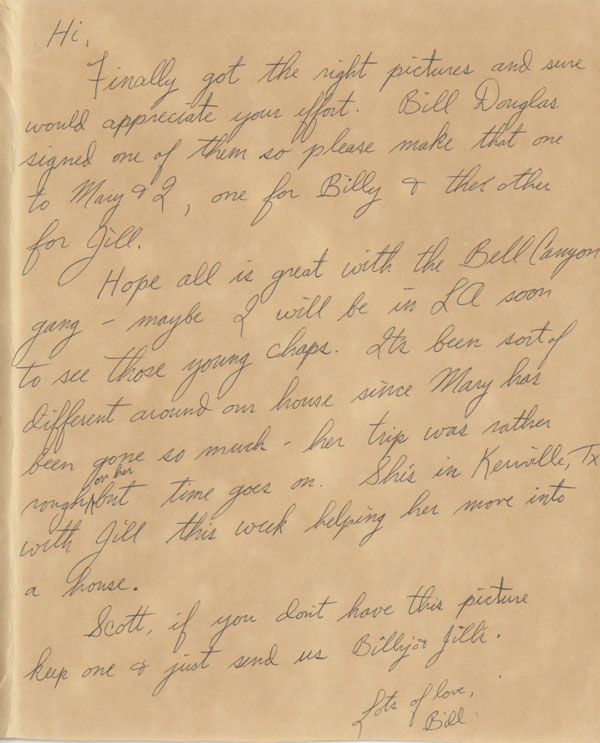 Hi,
Finally got the right pictures and sure
would appreciate your effort. Bill Douglas
signed one of them so please make that one
to Mary & I, one for Billy & the other
for Jill.
Hope all is great with the Bell Canyon
gang - maybe I will be in LA soon
to see those young chaps. It's been sort of
different around our house since Mary has
been gone so much - her trip was rather
rough on her but time goes on. She's in Kerrville, Tx
with Jill this week helping her move into
a house.
Scott, if you don't have this picture
keep one & just send us Billy's & Jill's.
Lots of love,
Bill